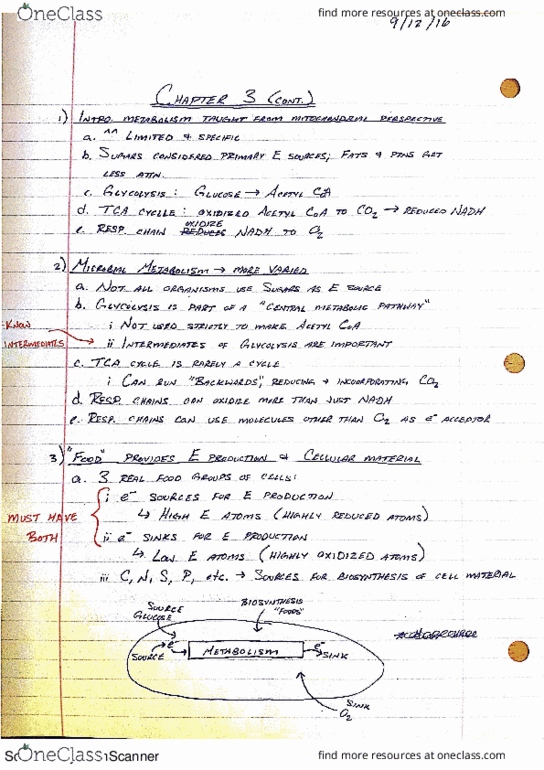 OneClass
find more resources at oneclass.com
9/12/16
CHAPTER 3 (CONT.)
1) INTRO. METABOLISM TAUGHT FROM MITOCHONDRIAL PERSPECTIVE
a. ^^ LIMITED & SPECIFIC
b. SUGARS CONSIDERED PRIMARY E SOURCES; FATS & PTNS GET
LESS ATTN.
c. GLYCOLYSIS: GLUCOSE → ACETYL CoA
d. TCA CYCLE: OXIDIZED ACETYL CoA TO CO2 → REDUCED NADH
OXIDIZE
e. RESP. CHAIN REDUCES NADH TO O2
2) MICROBIAL METABOLISM → MORE VARIED
a. NOT ALL ORGANISMS USE SUGARS AS E SOURCE
b. GLYCOLYSIS IS PART OF A "CENTRAL METABOLIC PATHWAY"
KNOW
i NOT USED STRICTLY TO MAKE ACETYL CoA
INTERMEDIATES
ii INTERMEDIATES OF GLYCOLYSIS ARE IMPORTANT
c. TCA CYCLE IS RARELY A CYCLE
i CAN RUN "BACKWARDS", REDUCING & INCORPORATING CO2
d. RESP. CHAINS CAN OXIDIZE MORE THAN JUST NADH
e. RESP. CHAINS CAN USE MOLECULES OTHER THAN O2 AS e- ACCEPTOR
3) "FOOD" PROVIDES E PRODUCTION & CELLULAR MATERIAL
a. 3 REAL FOOD GROUPS OF CELLS:
i e- SOURCES FOR E PRODUCTION
MUST HAVE
↳ HIGH E ATOMS (HIGHLY REDUCED ATOMS)
BOTH
ii e- SINKS FOR E PRODUCTION
↳ LOW E ATOMS (HIGHLY OXIDIZED ATOMS)
iii C, N, S, P, etc. → SOURCES FOR BIOSYNTHESIS OF CELL MATERIAL
SOURCE
GLUCOSE
BIOSYNTHESIS
"FOODS"
e-
SOURCE
METABOLISM
e-
SINK
SINK
O2
OneClass
Scanner
find more resources at oneclass.com